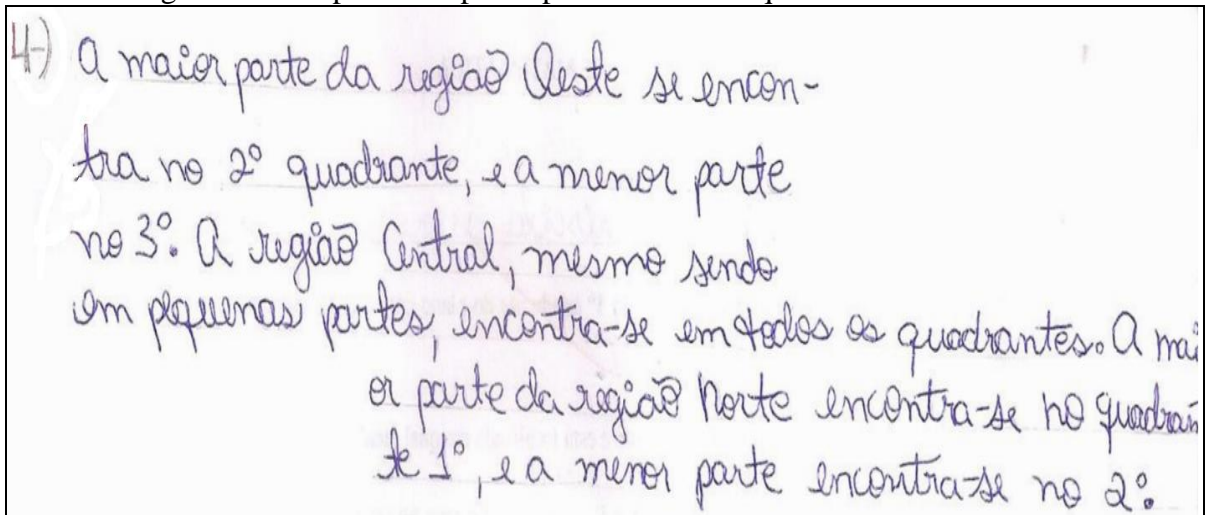 4-) A maior parte da região Oeste se encon-
tra no 2º quadrante, e a menor parte
no 3º. A região Central, mesmo sendo
em pequenas partes, encontra-se em todos os quadrantes. A mai
or parte da região Norte encontra-se no quadran
te 1º, e a menor parte encontra-se no 2º.